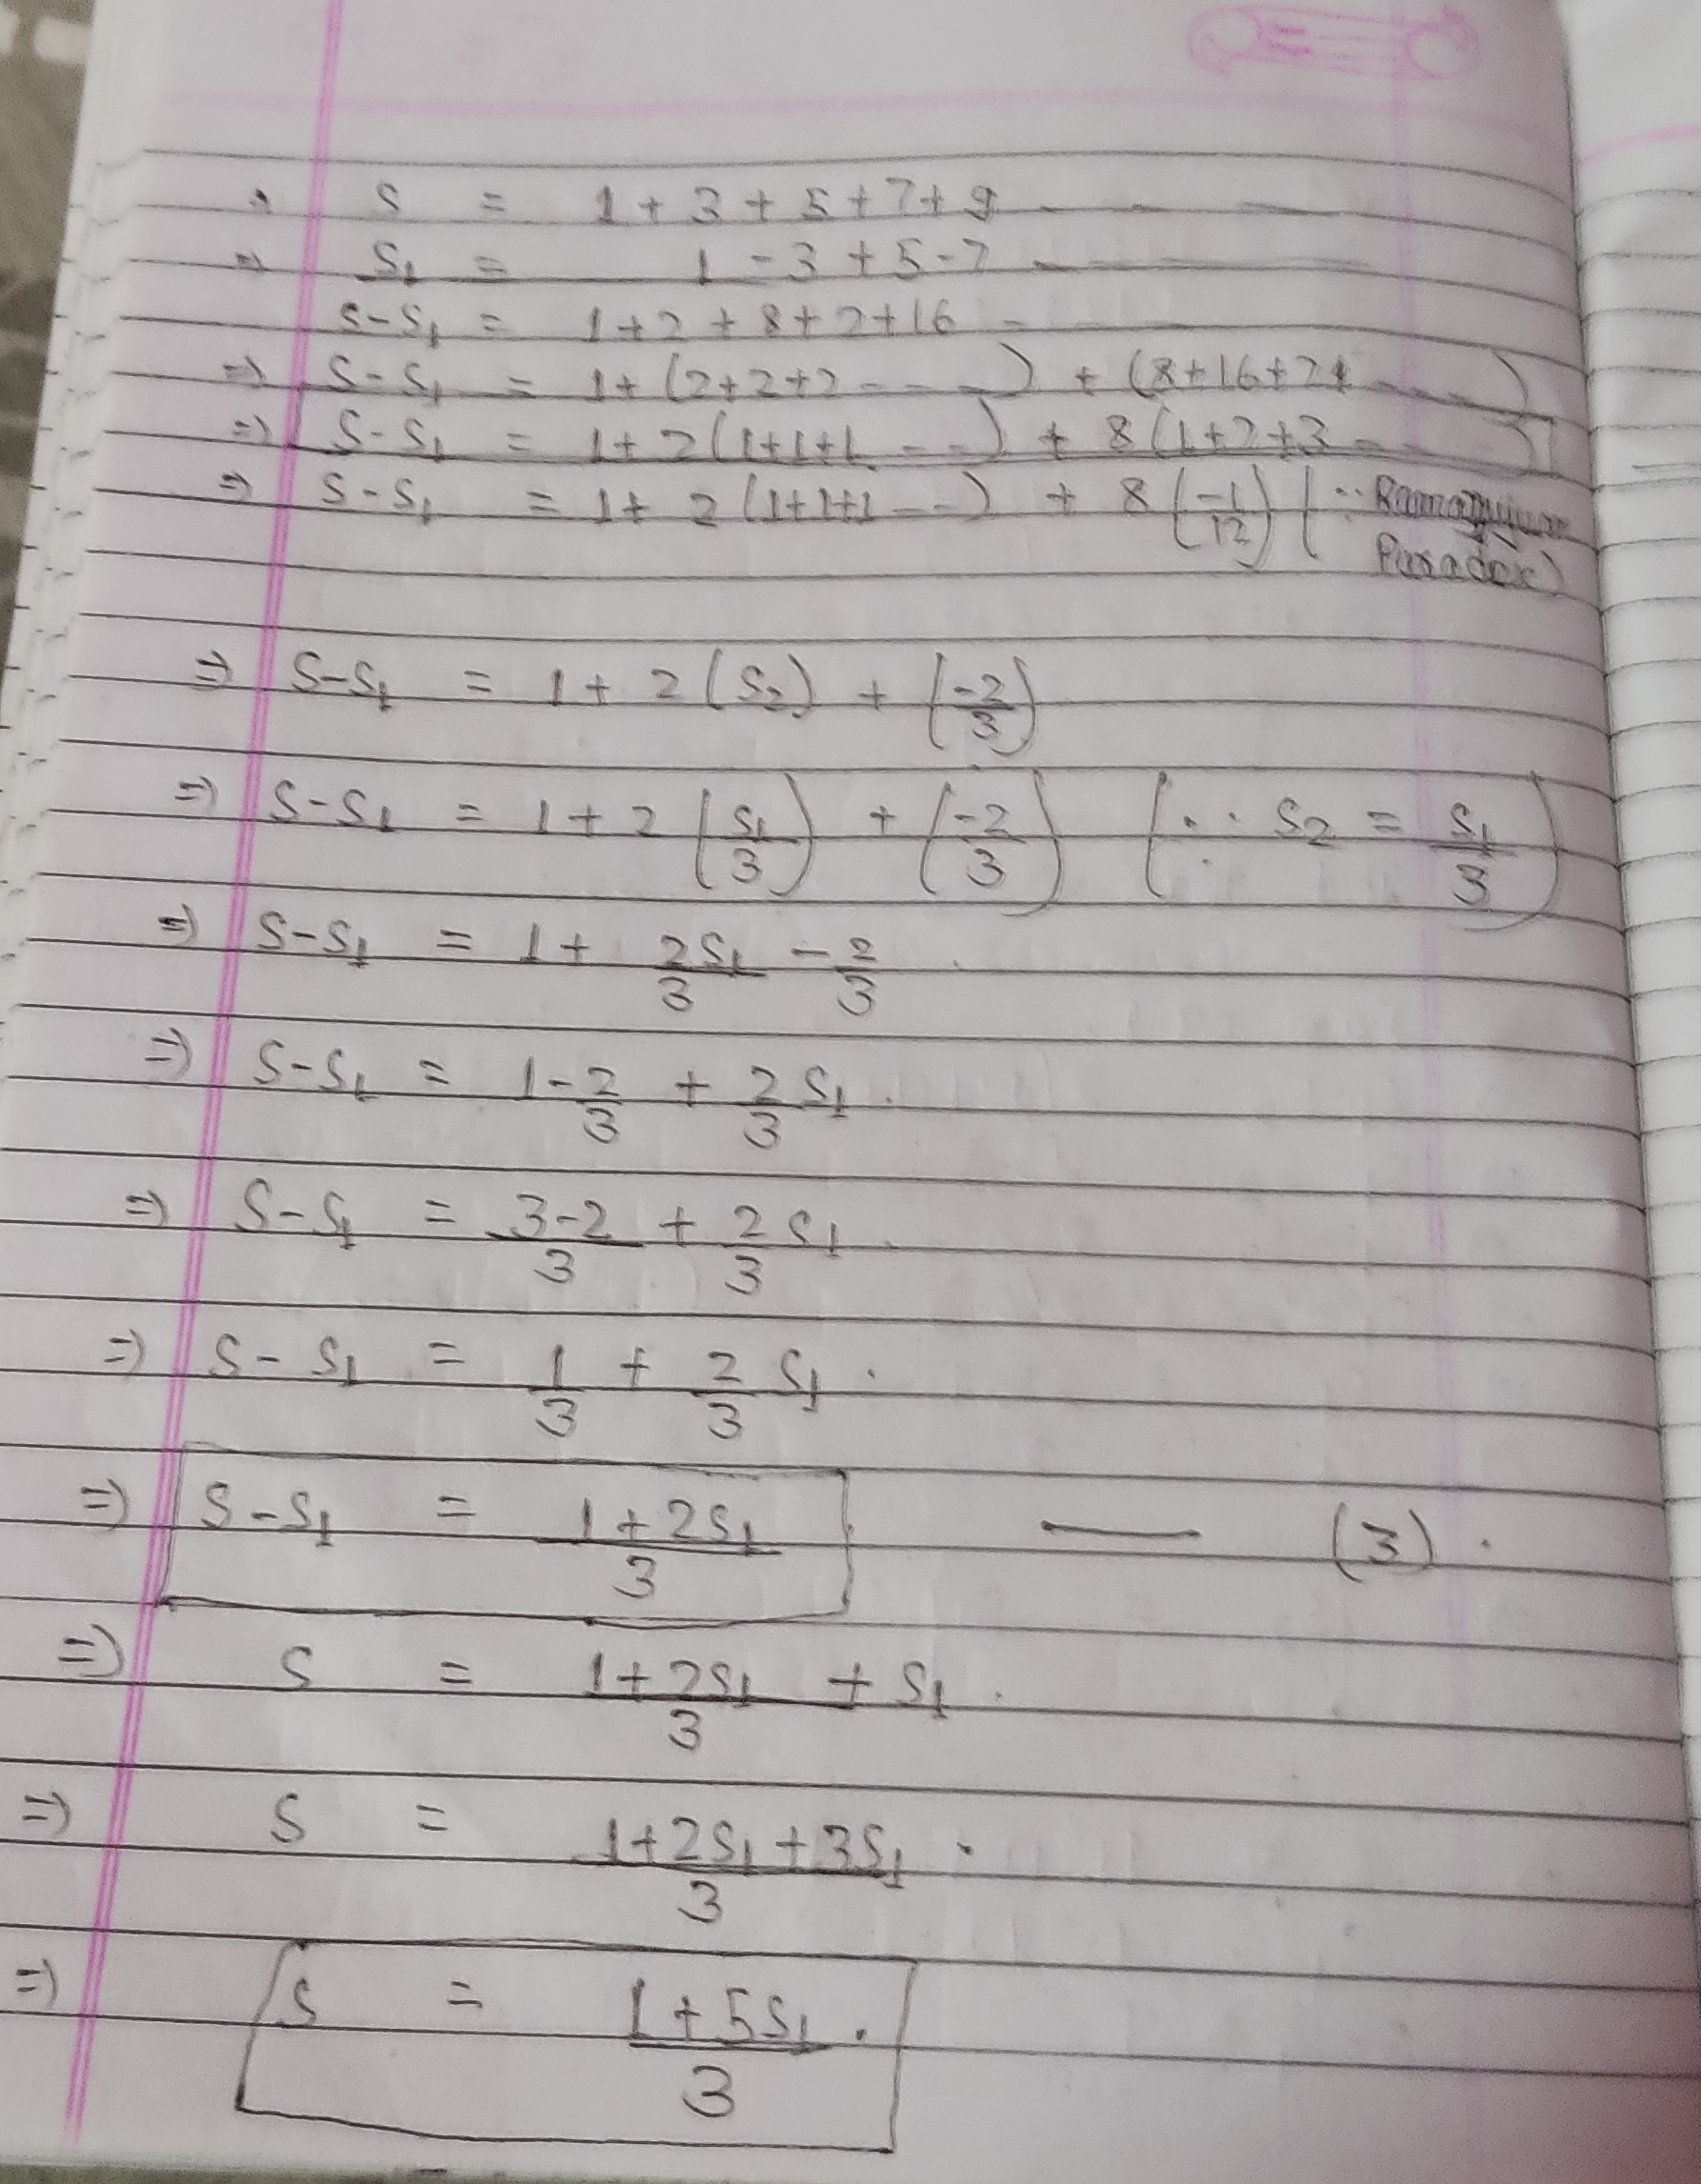 ∴ S = 1 + 3 + 5 + 7 + 9 - - -
⇒ S₁ = 1 - 3 + 5 - 7 - - -
S-S₁ = 1 + 2 + 8 + 2 + 16 - - -
⇒ S-S₁ = 1 + (2+2+2 - - - -) + (8+16+24 - - -)
⇒ S-S₁ = 1 + 2(1+1+1 - - -) + 8(1+2+3 - - -)
⇒ S-S₁ = 1 + 2(1+1+1 - - -) + 8(-1/12) (∵ Ramanujan
Paradox)
⇒ S-S₁ = 1 + 2(S₂) + (-2/3)
⇒ S-S₁ = 1 + 2(S₁/3) + (-2/3) (∵ S₂ = S₁/3)
⇒ S-S₁ = 1 + 2S₁/3 - 2/3
⇒ S-S₁ = 1 - 2/3 + 2/3 S₁.
⇒ S-S₁ = 3-2/3 + 2/3 S₁.
⇒ S-S₁ = 1/3 + 2/3 S₁.
⇒ S-S₁ = 1+2S₁/3 — (3).
⇒ S = 1+2S₁/3 + S₁.
⇒ S = 1+2S₁+3S₁/3.
⇒ S = 1+5S₁/3.